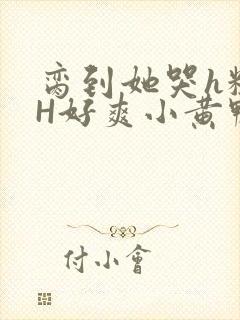 脔到她哭h粗
H好爽小黄鸭
付小會